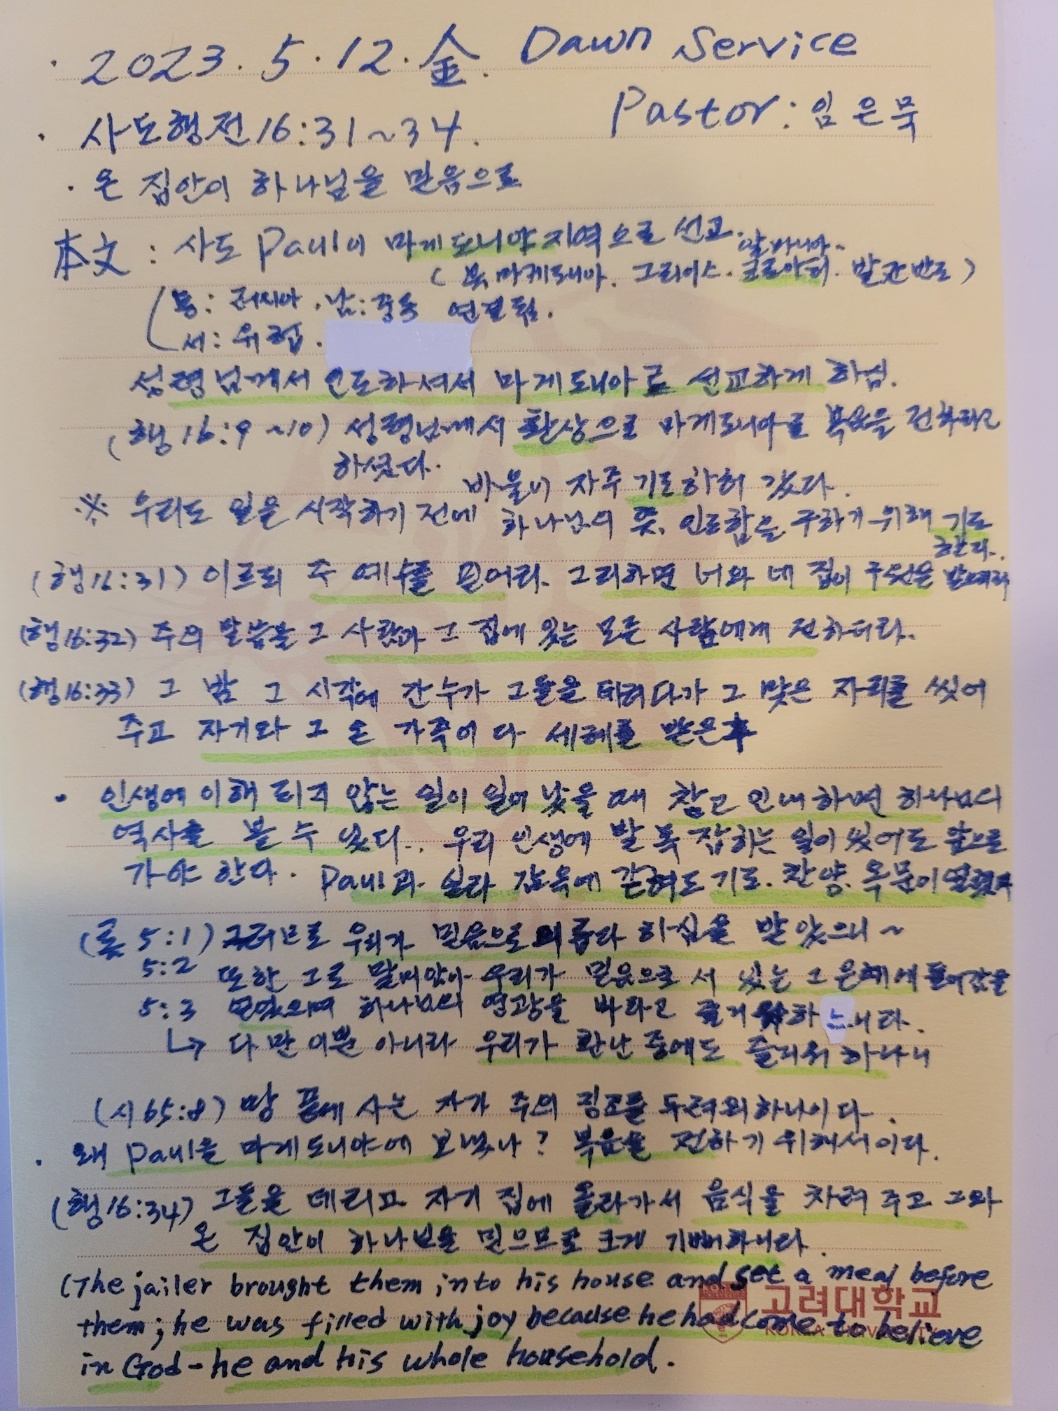 · 2023. 5. 12. 金. Dawn Service
· 사도행전 16:31~34. Pastor: 임은묵
· 온 집안이 하나님을 믿음으로
本文 : 사도 Paul이 마게도니야 지역으로 선교.
알바니아.
(북마케도니아. 그리이스. 크로아티. 발칸반도)
동: 러시아. 남: 중동 연결됨.
서: 유럽.
성령님께서 인도하셔서 마게도니아로 선교하게 하심.
(행 16:9~10) 성령님께서 환상으로 마게도니아로 복음을 전하라고
하셨다.
바울이 자주 기도하러 갔다.
※ 우리도 일을 시작하기 전에 하나님의 뜻. 인도함을 구하기 위해 기도
한다.
(행16:31) 이르되 주 예수를 믿어라. 그리하면 너와 네 집이 구원을 받으리라
(행16:32) 주의 말씀을 그 사람과 그 집에 있는 모든 사람에게 전하더라.
(행16:33) 그 밤 그 시각에 간수가 그들을 데려다가 그 맞은 자리를 씻어
주고 자기와 그 온 가족이 다 세례를 받은 후
· 인생에 이해 되지 않는 일이 일어 났을 때 참고 인내하면 하나님의
역사를 볼 수 있다. 우리 인생에 발목 잡히는 일이 있어도 앞으로
가야 한다. Paul과 실라 감옥에 갇혀도 기도. 찬양. 옥문이 열렸다
(롬 5:1) 그러므로 우리가 믿음으로 의롭다 하심을 받았으니 ~
5:2 또한 그로 말미암아 우리가 믿음으로 서 있는 그 은혜에 들어감을
5:3 얻었으며 하나님의 영광을 바라고 즐거워하느니라.
↳ 다만 이뿐 아니라 우리가 환난 중에도 즐거워 하나니
(시 65:8) 땅 끝에 사는 자가 주의 징조를 두려워하나이다.
· 왜 Paul을 마게도니야에 보냈나? 복음을 전하기 위해서이다.
(행16:34) 그들을 데리고 자기 집에 올라가서 음식을 차려 주고 그와
온 집안이 하나님을 믿으므로 크게 기뻐하니라.
(The jailer brought them into his house and set a meal before
them; he was filled with joy because he had come to believe
in God - he and his whole household.
고려대학교
KOREA UNIVERSITY